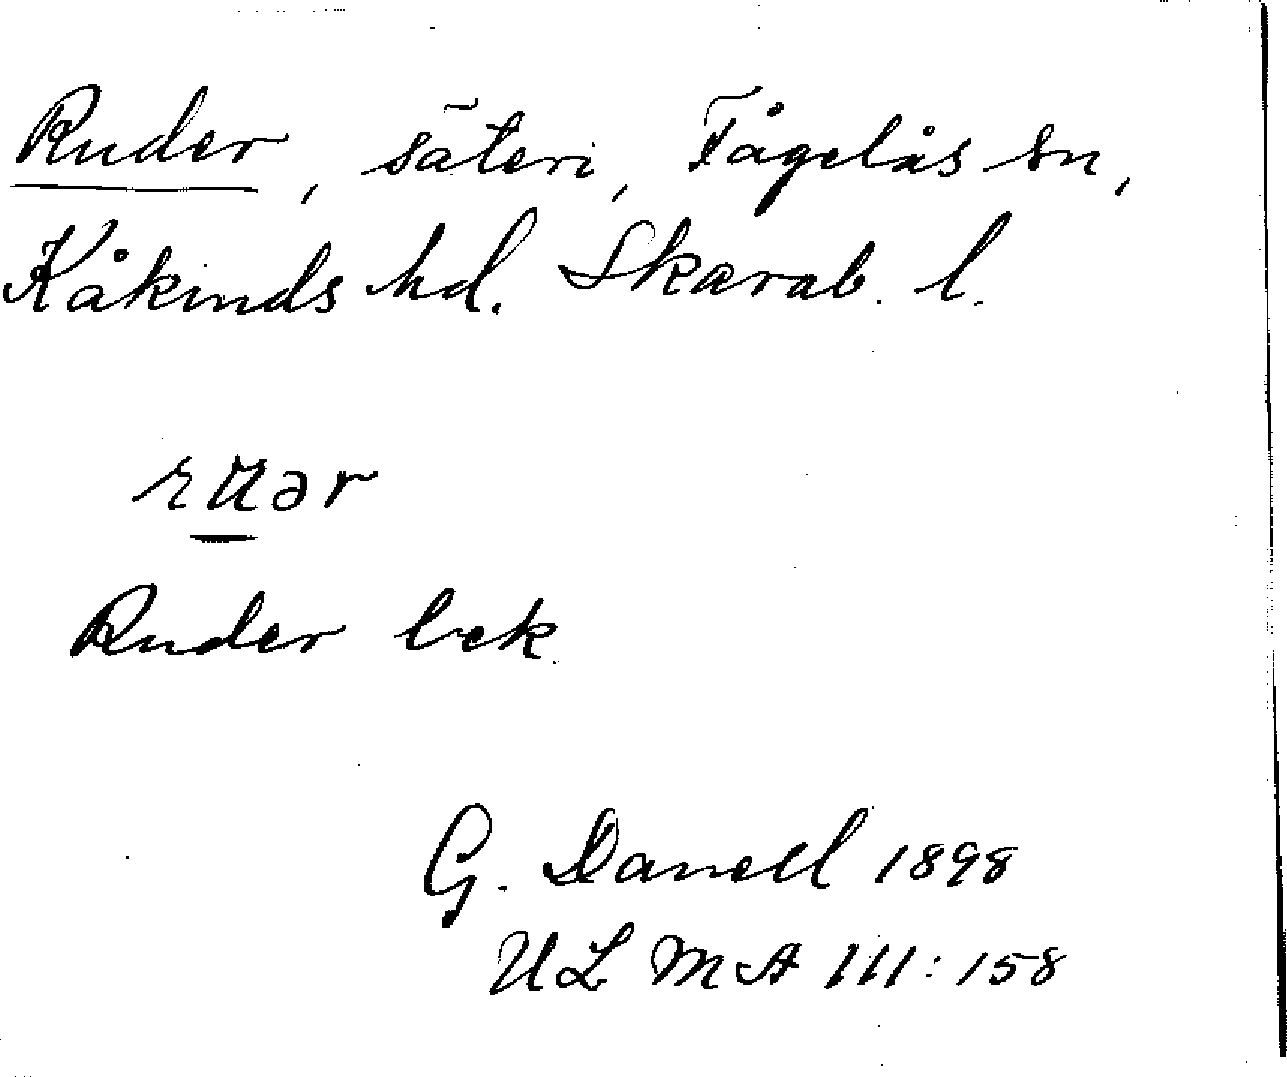 Ruder, säteri, Fågelås sn,
Kåkinds hd. Skarab. l.
Ruder bek.
G. Danell 1898
ULMA 111:158